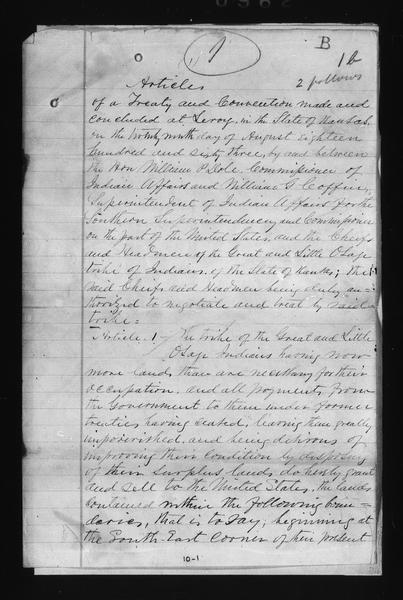 1
B
1b
2 follows
Articles
of a Treaty and Convention made and
concluded at Leroy, in the State of Kansas,
on the twenty ninth day of August eighteen
hundred and sixty three, by and between
the Hon. William P. Dole, Commissioner of
Indian Affairs and William G. Coffin,
Superintendent of Indian Affairs for the
Southern Superintendency, and Commissioners
on the part of the United States, and the Chiefs
and Headmen of the Great and Little Osage
tribe of Indians, of the State of Kansas; the
said Chiefs and Headmen being duly au=
thorized to negotiate and treat by said
tribe=
Article. 1 – The tribe of the Great and Little
Osage Indians having now
more lands than are necessary for their
occupation, and all payments from
the Government to them under former
treaties having ceased, leaving them greatly
impoverished, and being desirous of
improving their condition by disposing
of their surplus lands, do hereby grant
and sell to the United States, the lands
contained within the following boun=
daries, that is to say; beginning at
the South-East Corner of their present
10-1